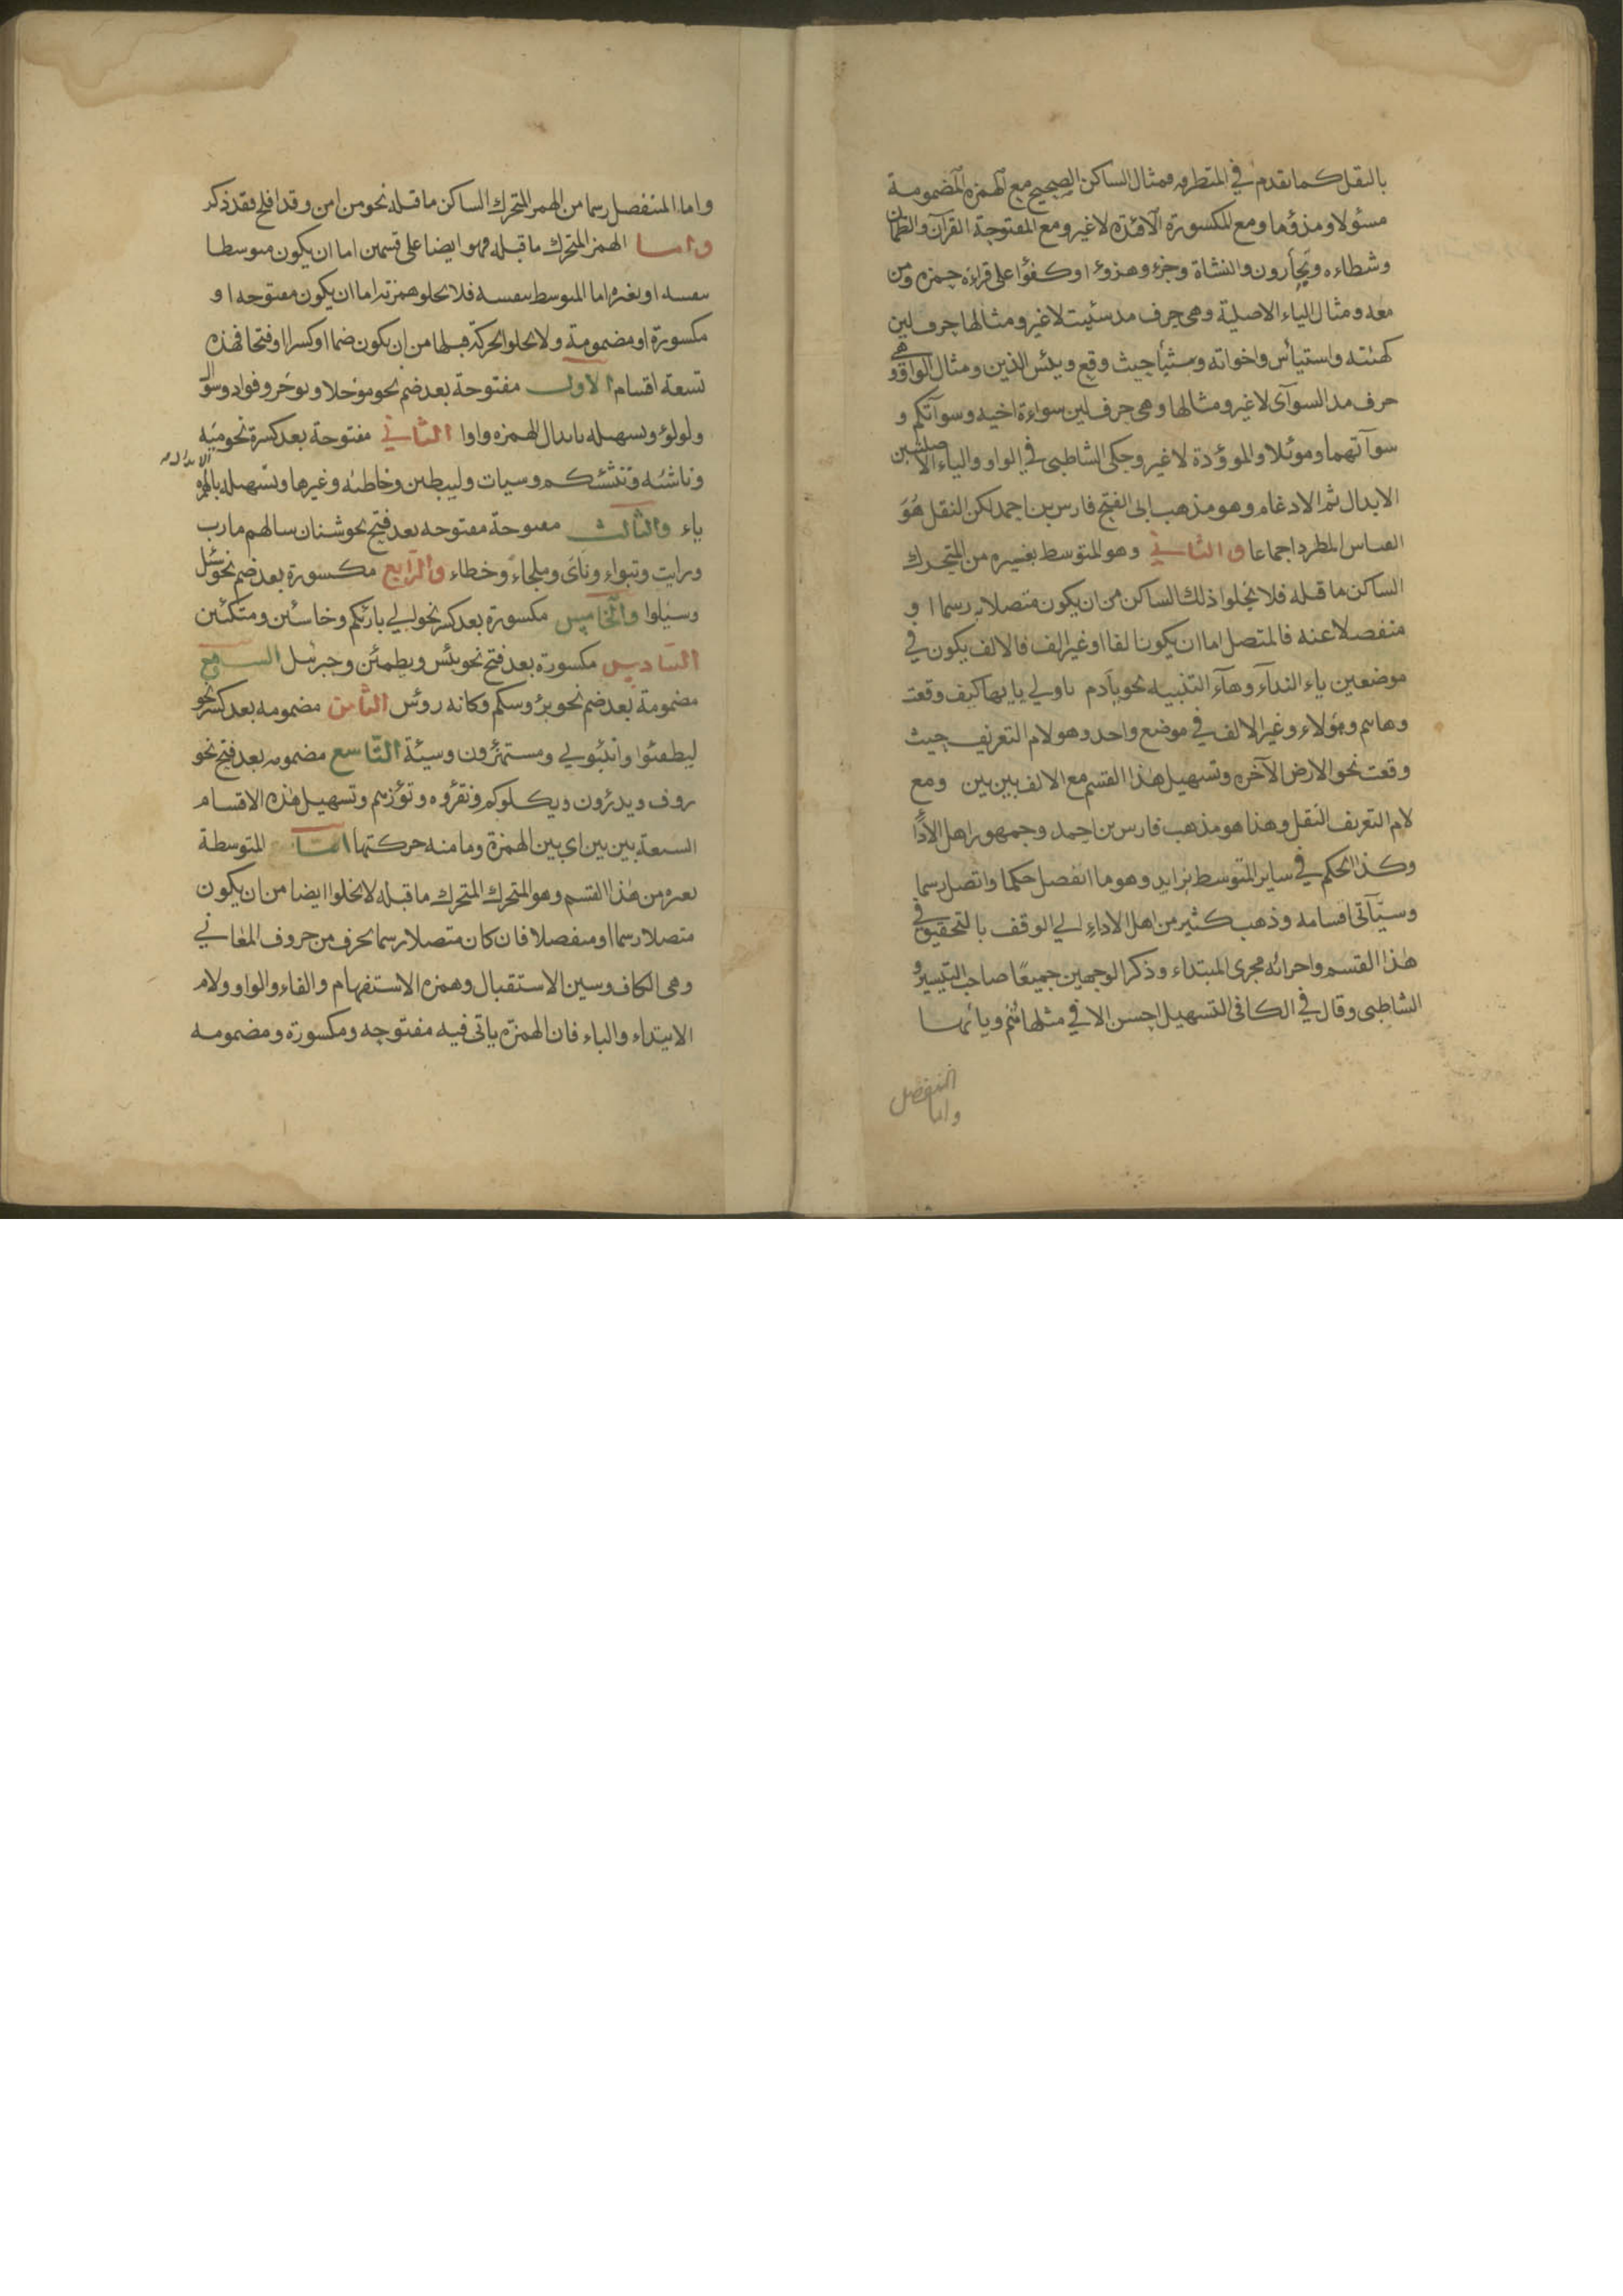 بالنقل كما تقدم في المتطرفه فمثال الساكن الصحيح مع الهمزه المضمومة
مسئولا ومذؤما ومع المكسورة الافئده لا غير ومع المفتوحة القرآن والظمآن
وشطاءه ويجأرون والنشاة وجزء وهزوءا وكفؤا على قراءة حمزه ومن
معه ومثال الياء الاصلية وهي حرف مد سئيت لا غير ومثالها حرف لين
كهيئه واستيأس واخواته وشيئا حيث وقع وبئس الذين ومثال الواو وهي
حرف مد السوآى لا غير ومثالها وهي حرف لين سواءة اخيه وسوآتكم و
سوآتهما وموئلا والموؤدة لا غير وحكى الشاطبي في الواو والياء الاصليتين
الابدال ثم الادغام وهو مذهب ابى الفتح فارس بن احمد لكن النقل هو
القياس المطرد اجماعا والثاني وهو المتوسط بغيره من المتحرك
الساكن ما قبله فلا يخلوا ذلك الساكن من ان يكون متصلا به رسما او
منفصلا عنه فالمتصل اما ان يكون الفا او غير الف فالالف يكون في
موضعين ياء النداء وهاء التنبيه نحو يآدم ياولي يايها كيف وقعت
وهانتم وهؤلاء وغير الالف في موضع واحد وهو لام التعريف حيث
وقعت نحو الارض الآخره وتسهيل هذا القسم مع الالف بين بين ومع
لام التعريف النقل وهذا هو مذهب فارس بن احمد وجمهور اهل الأدا
وكذا الحكم في ساير المتوسط بزايد وهو ما انفصل حكما واتصل رسما
وسيأتى اقسامه وذهب كثير من اهل الاداء الي الوقف بالتحقيق في
هذا القسم واجرائه مجرى المبتداء وذكر الوجهين جميعا صاحب التيسير و
الشاطبى وقال في الكافى التسهيل احسن الا في مثل هانتم ويائها
واما المنفصل
واما المنفصل رسما من الهمز المتحرك الساكن ما قبله نحو من امن وقد افلح فقد ذكر
واما الهمز المتحرك ما قبله فهو ايضا على قسمين اما ان يكون متوسطا
بنفسه او بغيره اما المتوسط بنفسه فلا يخلو همزته اما ان يكون مفتوحه او
مكسورة او مضمومة ولا يخلوا الحركة قبلها من ان يكون ضما او كسرا او فتحا فهذه
تسعة اقسام الاول مفتوحة بعد ضم نحو مؤجلا ويؤخر وفواد وسؤال
ولولؤ وتسهيله بابدال الهمزه واوا الثاني مفتوحة بعد كسرة نحو مئه
وناشئه وننشئكم وسيات وليبطين وخاطئه وغيرها وتسهيله بالهمزه
ياء والثالث مفتوحة مفتوحه بعد فتح نحو شنان سالهم مارب
ورايت وتبواء ونآى وملجاء وخطاء والرابع مكسورة بعد ضم نحو سئل
وسيلوا والخامس مكسورة بعد كسر نحو الي بارئكم وخاسئين ومتكئين
السادس مكسورة بعد فتح نحو يئس ويطمئن وجبرئيل السابع
مضمومة بعد ضم نحو برؤسكم وكانه رؤس الثامن مضمومه بعد كسر نحو
ليطفئوا وانبئوني ومستهزؤن وسيئة التاسع مضمومه بعد فتح نحو
روف ويدرؤن ويكلوكم ونقرؤه وتؤزهم وتسهيل هذه الاقسام
السبعة بين بين اي بين الهمزة وما منه حركتها اما المتوسطة
بغيره من هذا القسم وهو المتحرك المتحرك ما قبله لا يخلوا ايضا من ان يكون
متصلا رسما او منفصلا فان كان متصلا رسما بحرف من حروف المعاني
وهي الكاف وسين الاستقبال وهمزه الاستفهام والفاء والواو ولام
الابتداء والباء فان الهمزه ياتى فيه مفتوحه ومكسورة ومضمومه